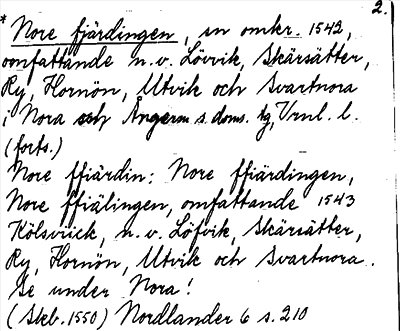 2.
* Nore fjärdingen, en omkr. 1543,
omfattande n.v. Lövvik, Skärsätter,
Ry, Hornön, Utvik och Svartnora
i Nora sch Ångerm. s. doms. tg, Vrnl. l.
(forts.)
Nore ffiärdin: Nore ffiärdingen,
Nore ffiälingen, omfattande 1543
Kölsviick, n.v. Löfvik, Skärsätter,
Ry, Hornön, Utvik och Svartnora.
Se under Nora!
(Skb. 1550) Nordlander 6 s. 210